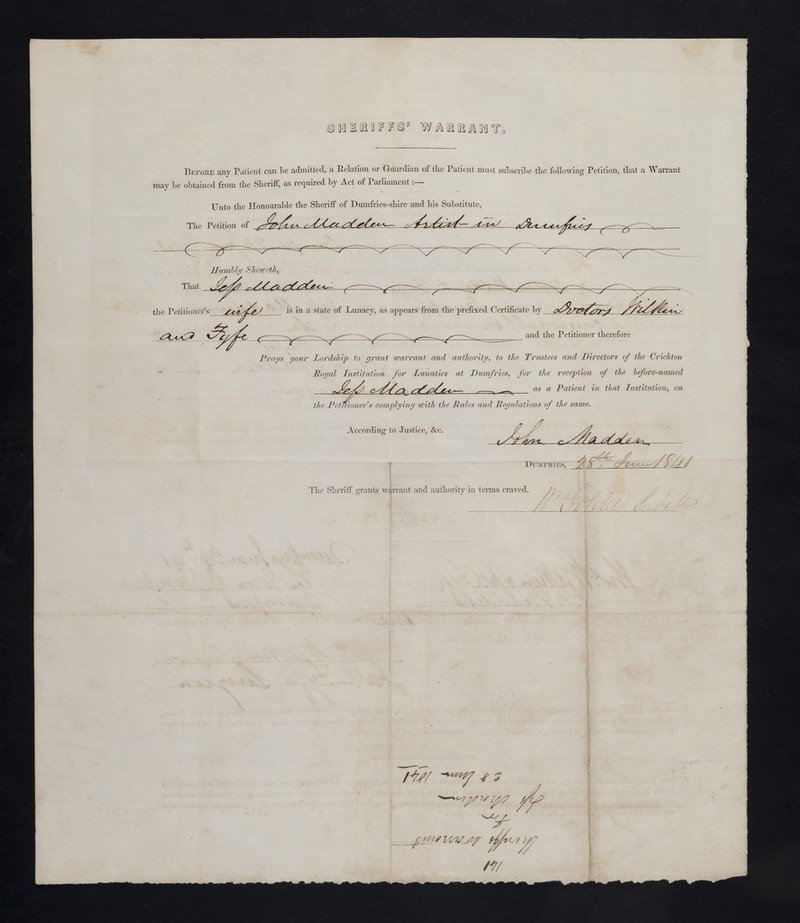 SHERIFFS' WARRANT.
BEFORE any Patient can be admitted, a Relation or Guardian of the Patient must subscribe the following Petition, that a Warrant
may be obtained from the Sheriff, as required by Act of Parliament :—
Unto the Honourable the Sheriff of Dumfries-shire and his Substitute,
The Petition of John Madden Artist in Dumfries
Humbly Sheweth,
That Jess Madden
the Petitioner's wife is in a state of Lunacy, as appears from the prefixed Certificate by Doctors Wilkin
and Fyfe and the Petitioner therefore
Prays your Lordship to grant warrant and authority, to the Trustees and Directors of the Crichton
Royal Institution for Lunatics at Dumfries, for the reception of the before-named
Jess Madden as a Patient in that Institution, on
the Petitioner's complying with the Rules and Regulations of the same.
According to Justice, &c.
John Madden
DUMFRIES, 28th June 1841
The Sheriff grants warrant and authority in terms craved.
141
Sheriffs Warrant
for
Jess Madden
28 June 1841